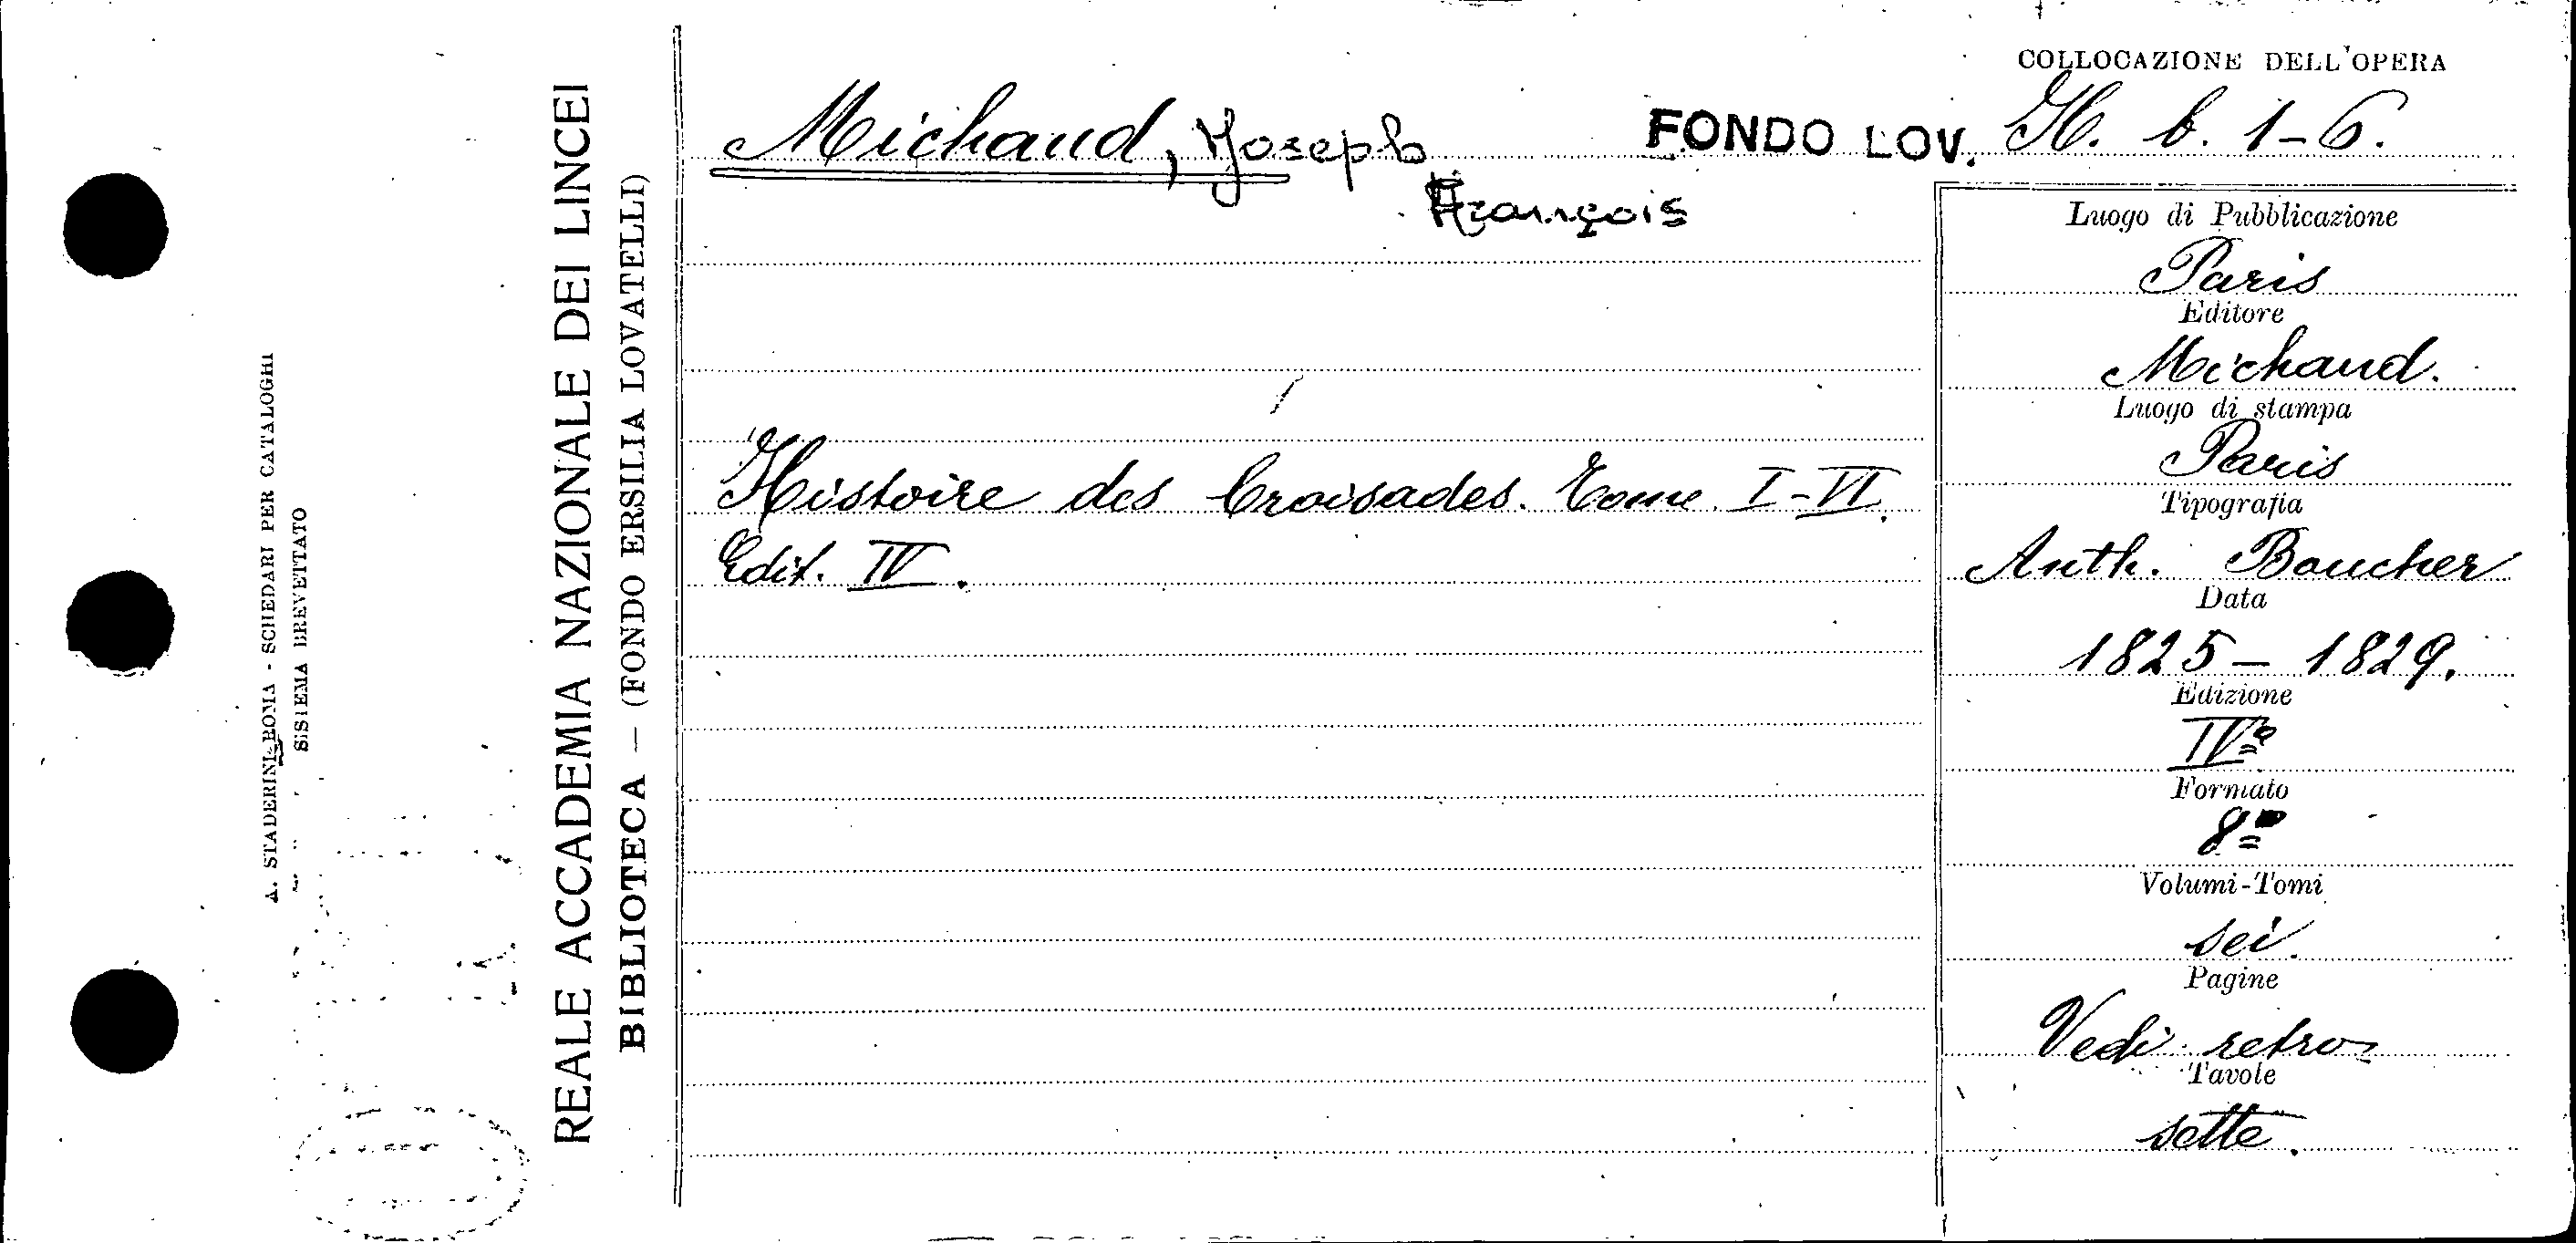 COLLOCAZIONE DELL'OPERA
Michaud, Joseph François
FONDO LOV. H. b. 1-6.
Histoire des Croisades. Tome I-VI.
Edit. IV.
Luogo di Pubblicazione
Paris
Editore
Michaud.
Luogo di stampa
Paris
Tipografia
Anth. Boucher
Data
1825 – 1829.
Edizione
IVª
Formato
8º
Volumi-Tomi
sei.
Pagine
Vedi retro
Tavole
sette.
REALE ACCADEMIA NAZIONALE DEI LINCEI
BIBLIOTECA — (FONDO ERSILIA LOVATELLI)
A. STADERINI-ROMA - SCHEDARI PER CATALOGHI
SISTEMA BREVETTATO